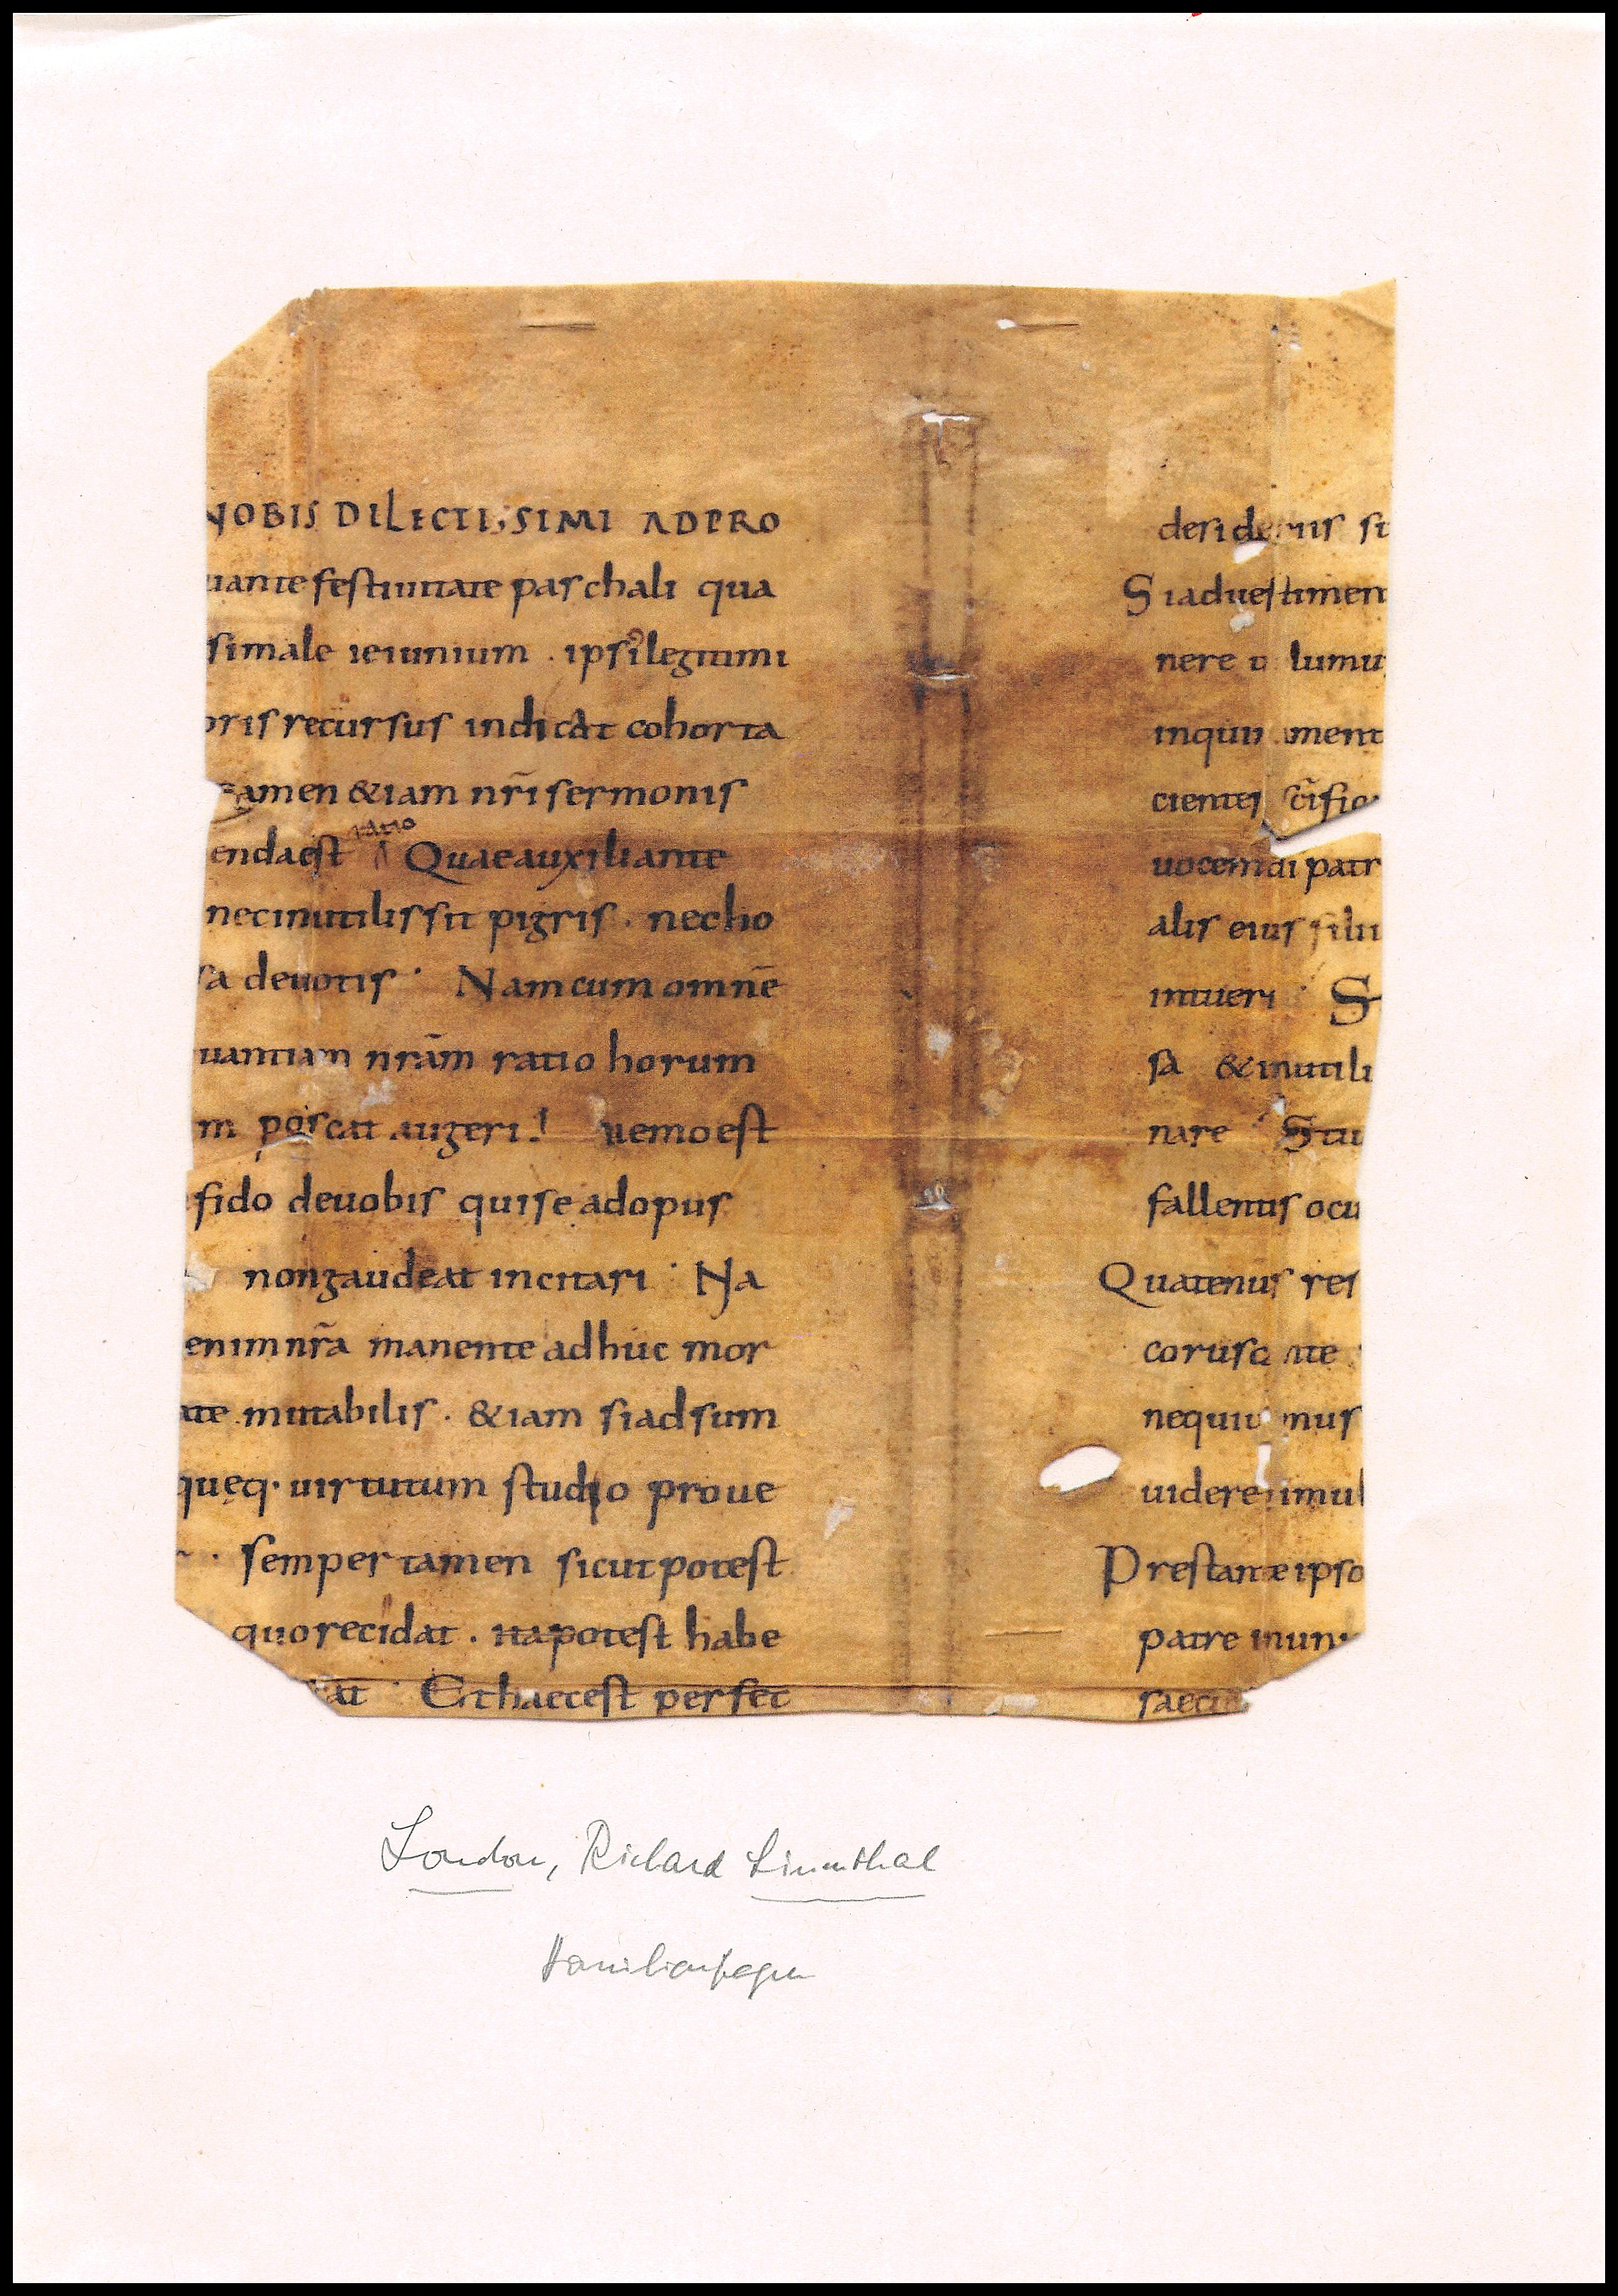 NOBIS DILECTISSIMI ADPRO
uante festiuitate paschali qua
simale ieiunium . ipsi legitimi
oris recursus indicat cohorta
tamen &iam nr̄i sermonis
ratio
endaest Quae auxiliante
nec inutilis sit pigris . necho
sa deuotis · Nam cum omnē
uantiam nrām ratio horum
m poscat augeri ! nemo est
fido deuobis qui se adopus
non gaudeat incitari · Na
enim nr̄a manente adhuc mor
ate mutabilis . &iam si adsum
queq· uirtutum studio proue
. semper tamen sicut potest
quo recidat . ita potest habe
at · Et haec est perfec
desideriis si
Si ad uestimen
nere uolumu
inquinament
cientes sc̄ifi
uocem di patr
alis eius filii
intueri · S
sa & inutili
nare Stu
fallentis ocu
Quatenus res
coruscante
nequiuimus
uidere simul
Prestante ipso
patre inuni
saecu
London, Richard Linenthal